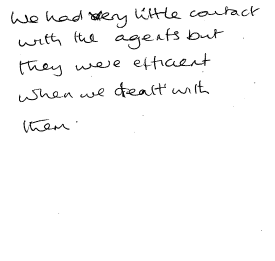 We had very little contact
with the agents but
they were efficient
when we dealt with
them.